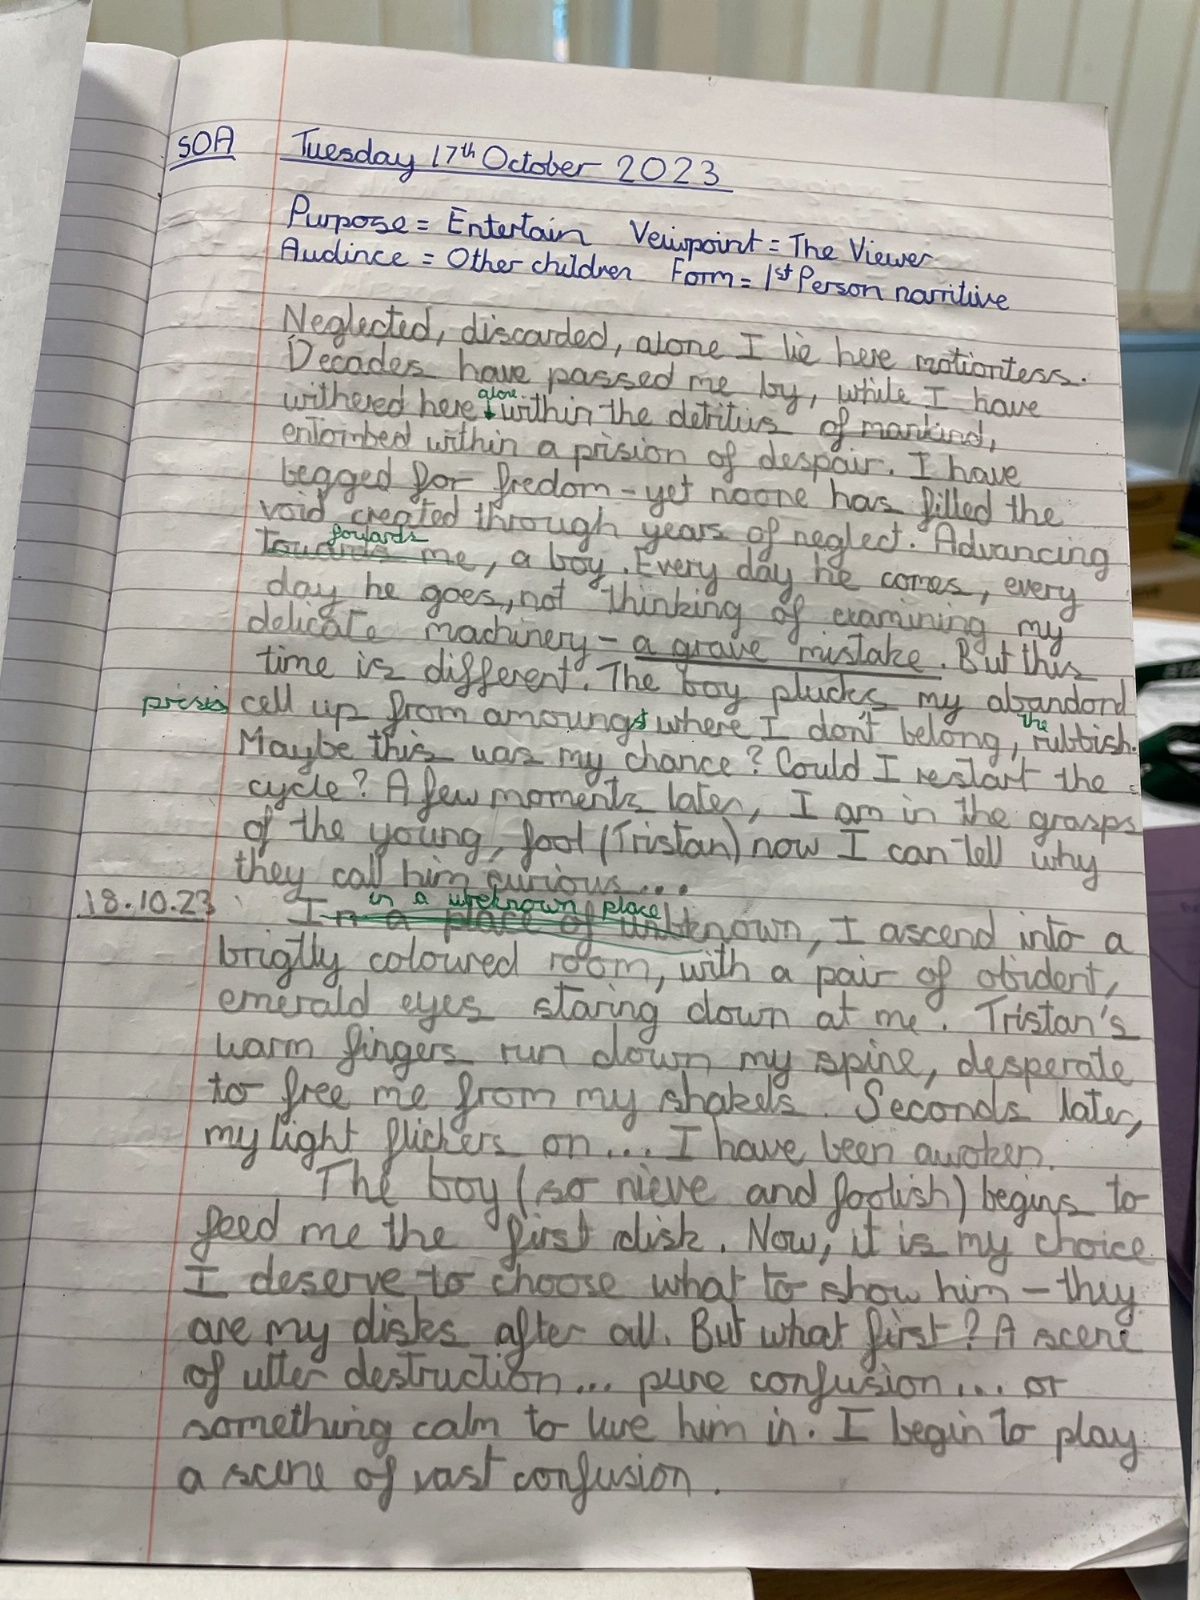 SOA Tuesday 17th October 2023
Purpose = Entertain Veiwpoint = The Viewer
Audince = Other children Form = 1st Person narritive
Neglected, discarded, alone I lie here motionless.
Decades have passed me by, while I have
alone
withered here within the detritus of mankind,
entombed within a prision of despair. I have
begged for fredom - yet noone has filled the
void created through years of neglect. Advancing
foulards
towards me, a boy. Every day he comes, every
day he goes, not thinking of examining my
delicate machinery - a grave mistake. But this
time is different. The boy plucks my abandond
the
cell up from amoungst where I don't belong, rubbish.
Maybe this was my chance? Could I restart the
cycle? A few moments later, I am in the grasps
of the young, fool (Tristan) now I can tell why
they call him curious...
in a unknown place
18.10.23 In a place of unknown, I ascend into a
brigtly coloured room, with a pair of obident,
emerald eyes staring down at me. Tristan's
warm fingers run down my spine, desperate
to free me from my shakels. Seconds later,
my light flickers on... I have been awoken.
The boy (so nieve and foolish) begins to
feed me the first disk. Now, it is my choice
I deserve to choose what to show him - they
are my disks after all. But what first? A scene
of utter destruction... pure confusion... or
something calm to lure him in. I begin to play
a scene of vast confusion.